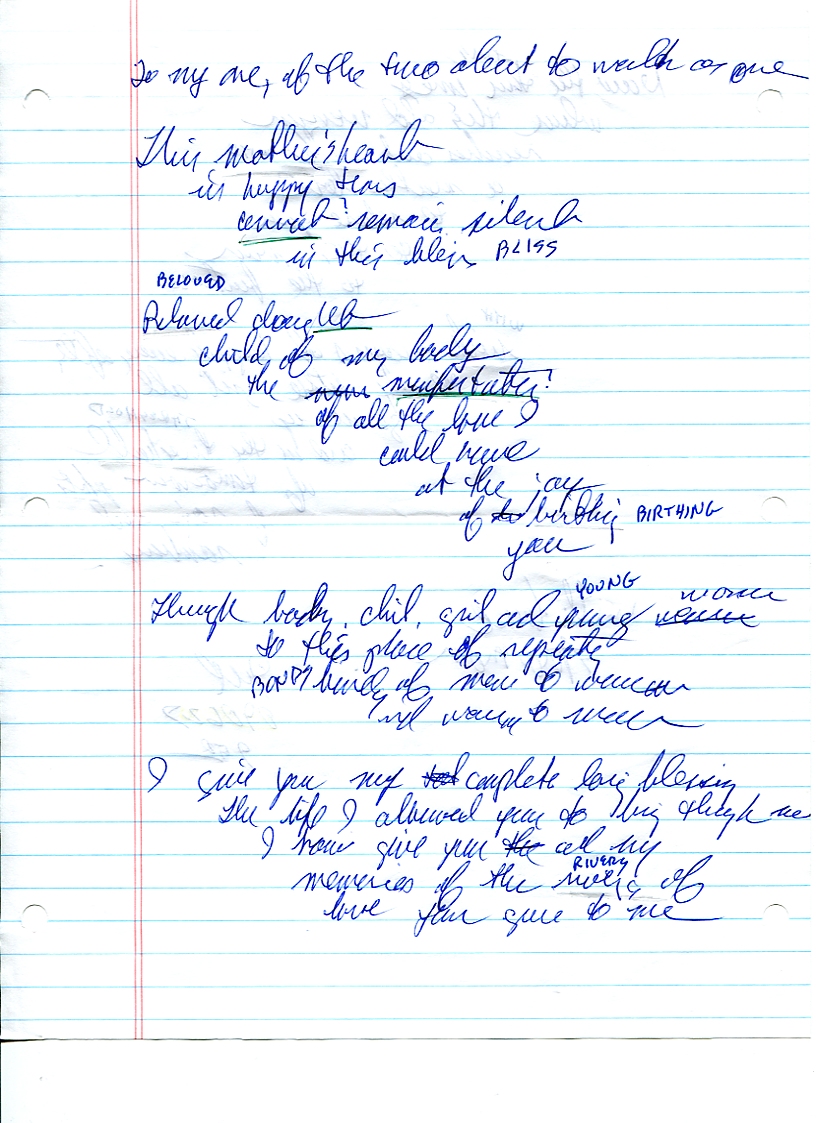 To my one, of the two about to walk as one
This mother's heart
in happy tears
cannot? remain silent
in this bliss BLISS
BELOVED
Beloved daughter
child of my body
the manifestation?
of all the love I
could have
at the joy
of birthing BIRTHING
you
YOUNG woman
Through baby, child, girl and young
to this place of
BONDS? of man to woman
and woman to
I give you my complete loving blessing
The life I allowed you to bring through me
I now give you all my
RIVERS
memories of the rivers of
love you gave to me